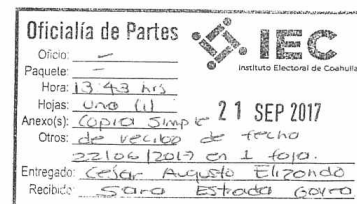 Oficialía de Partes
IEC
Instituto Electoral de Coahuila
Oficio: —
Paquete: —
Hora: 13 43 hrs
Hojas: Una (1)
21 SEP 2017
Anexo(s): Copia Simple
Otros: de recibo de fecha
22/06/2017 en 1 foja.
Entregado: Cesar Augusto Elizondo
Recibido: Sara Estrada